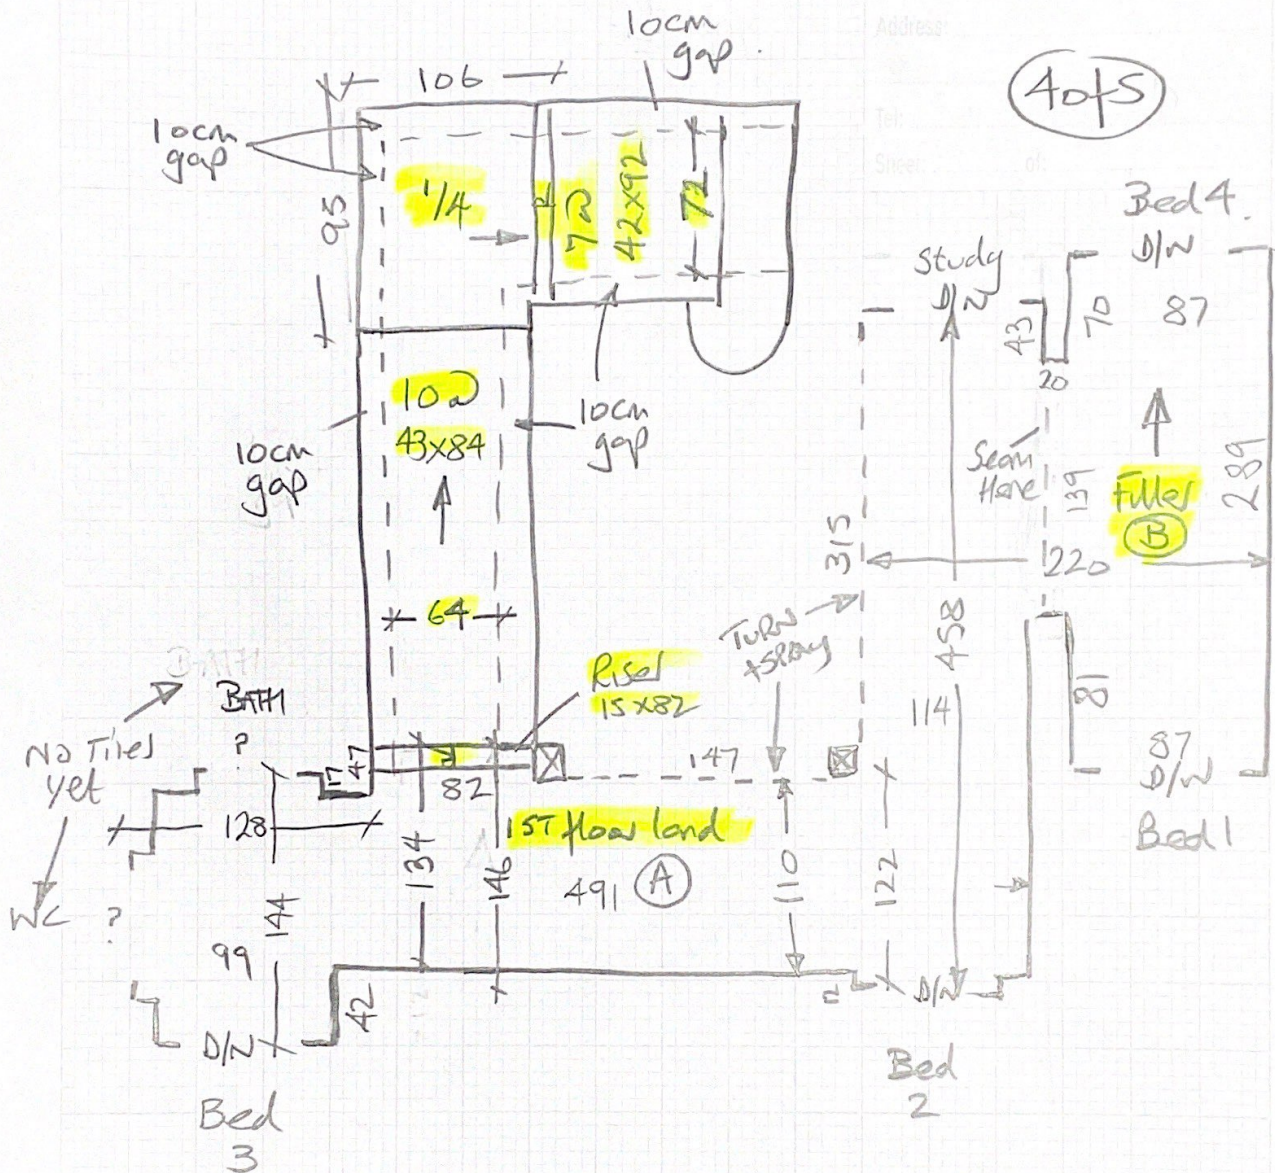 Address:
Tel:
Sheet: of:
4 of 5
10cm
gap
106
10cm
gap
95
1/4
7@
42x92
72
Bed 4.
D/W
Study
43
70
87
20
10@
43x84
10cm
gap
10cm
gap
Seam
Here
139
Filler
B
289
315
220
64
TURN
+SPRAY
458
Riser
15x82
BATH
BATH
?
No Tiles
yet
47
17
82
147
114
81
87
D/W
Bed 1
128
134
146
1ST floor land
491
A
110
122
WC ?
144
99
42
D/W
D/W
Bed
3
Bed
2